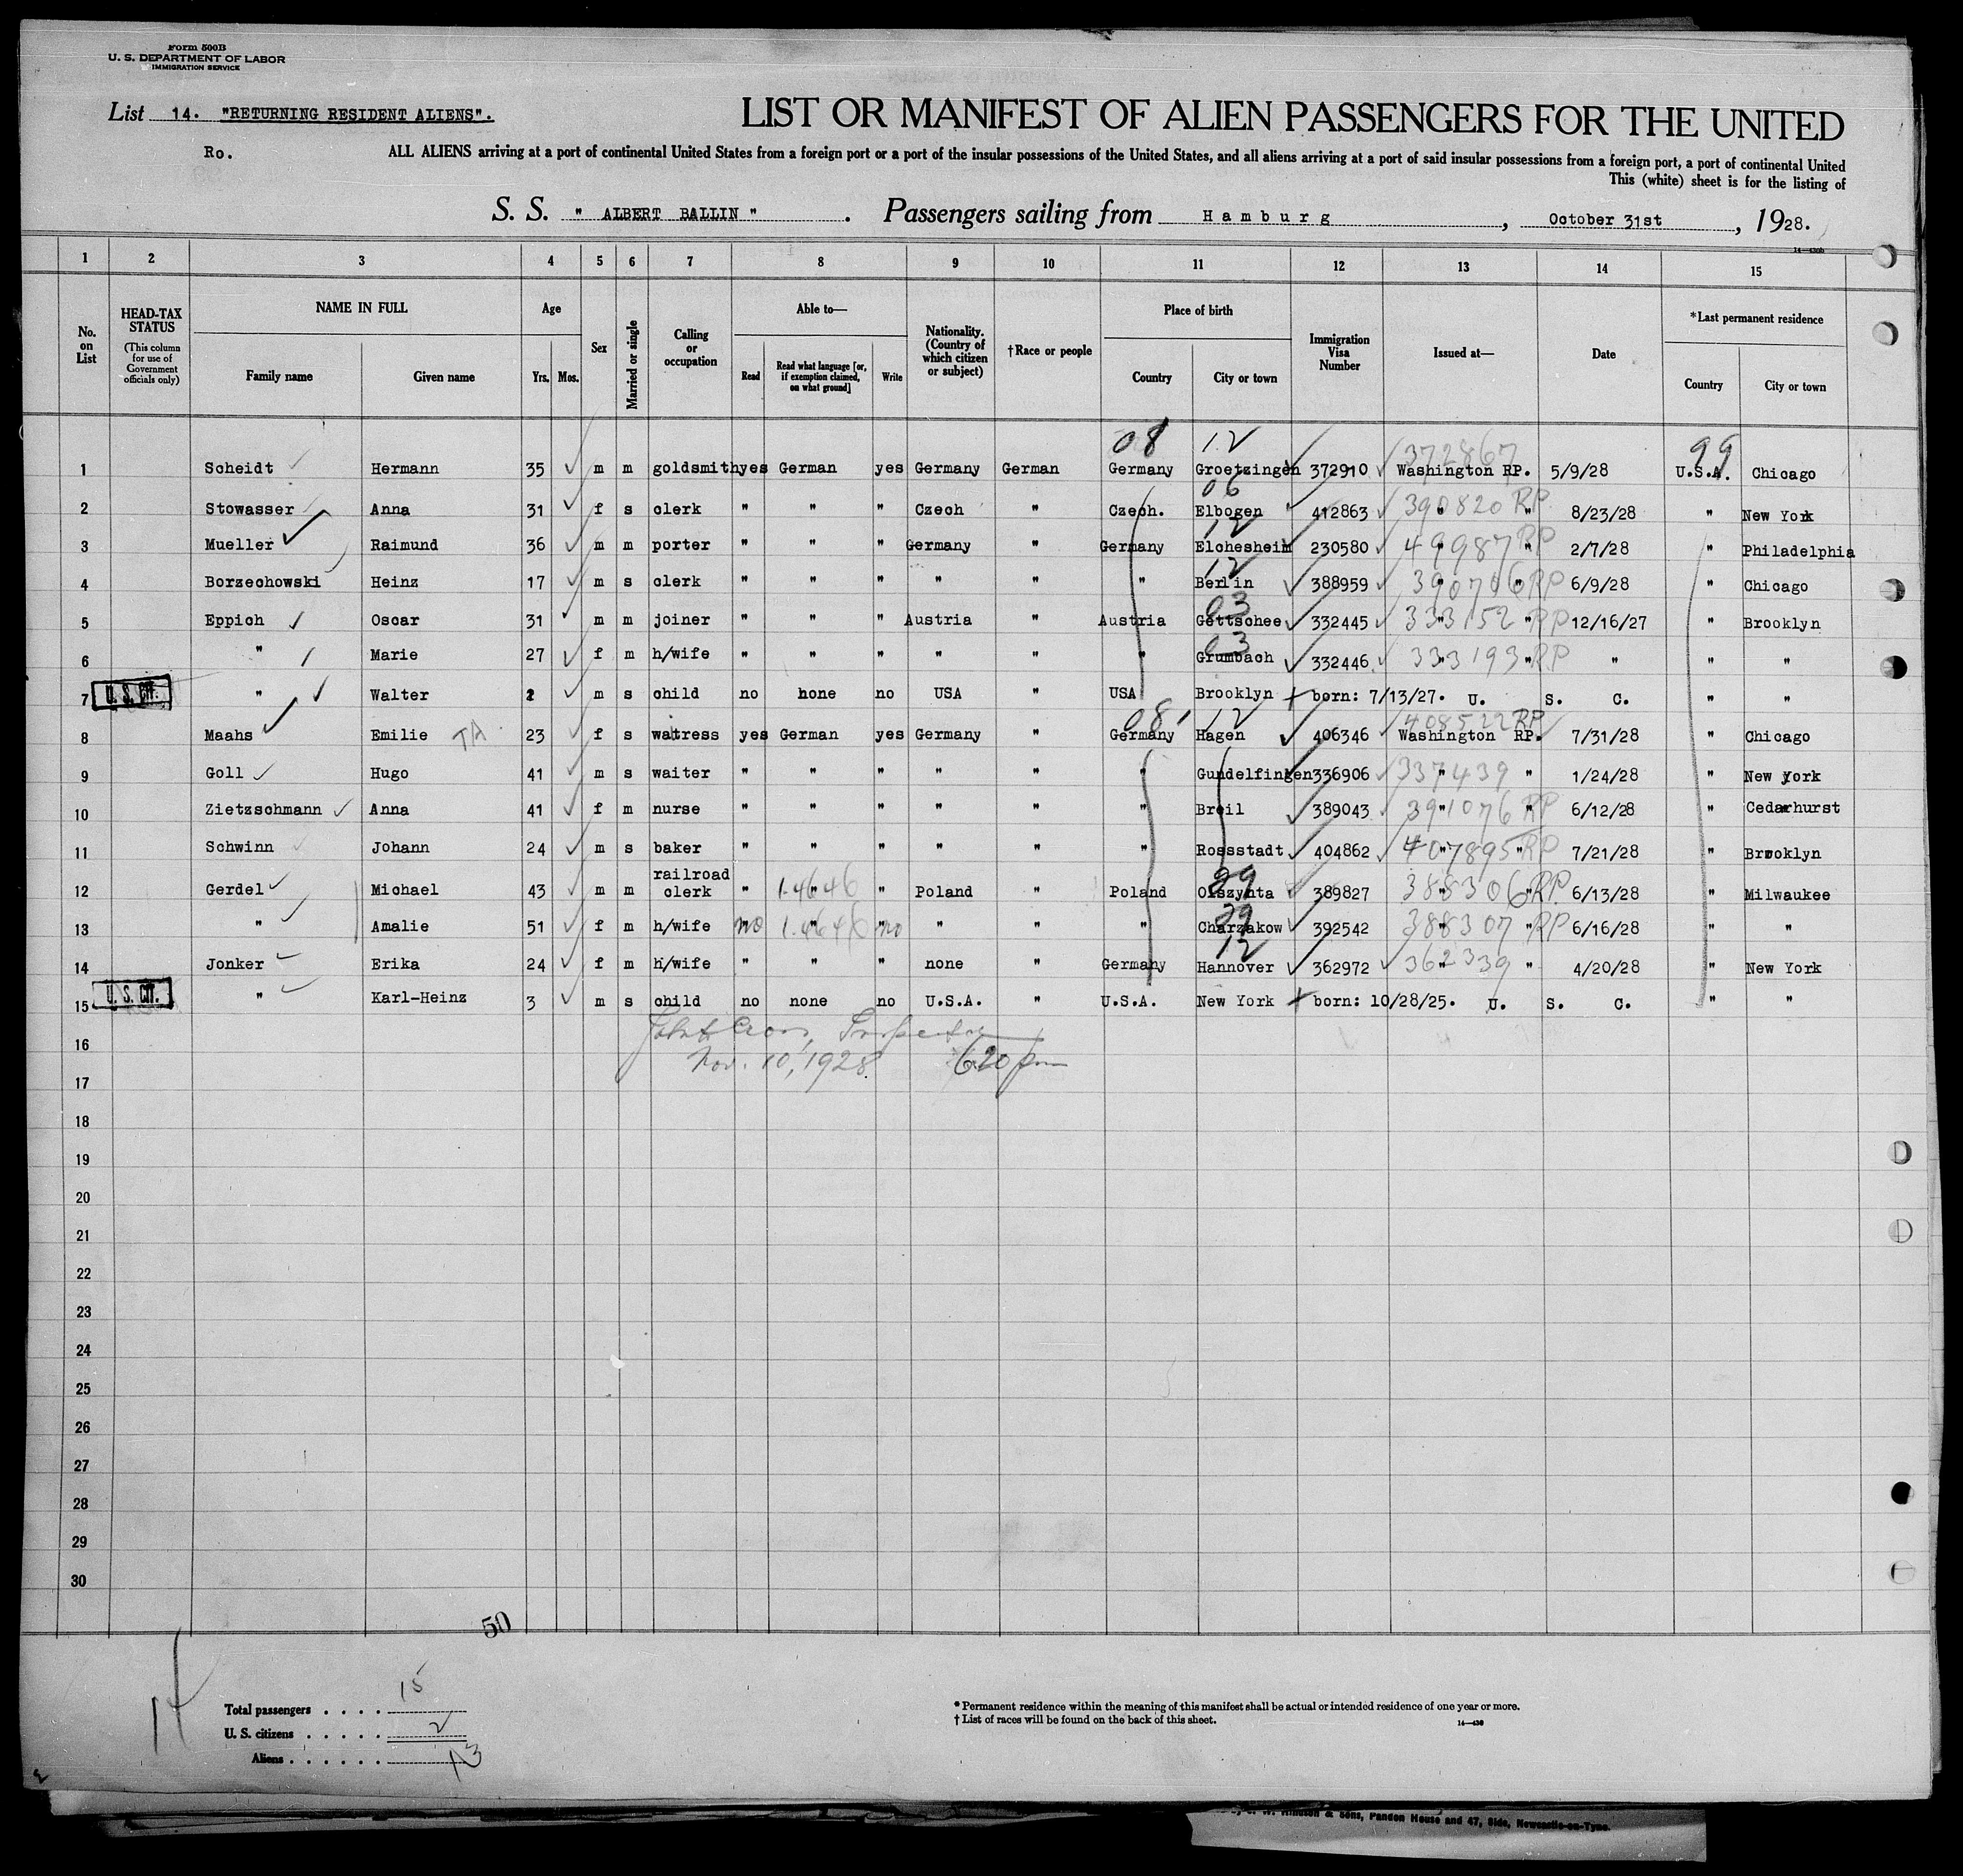 Form 500B
U. S. DEPARTMENT OF LABOR
IMMIGRATION SERVICE
List 14. "RETURNING RESIDENT ALIENS".
LIST OR MANIFEST OF ALIEN PASSENGERS FOR THE UNITED
Ro.
ALL ALIENS arriving at a port of continental United States from a foreign port or a port of the insular possessions of the United States, and all aliens arriving at a port of said insular possessions from a foreign port, a port of continental United
This (white) sheet is for the listing of
S. S. " ALBERT BALLIN " . Passengers sailing from Hamburg , October 31st , 1928.
14—430b
1 2 3 4 5 6 7 8 9 10 11 12 13 14 15
No. on List
HEAD-TAX STATUS (This column for use of Government officials only)
NAME IN FULL
Family name Given name
Age
Yrs. Mos.
Sex
Married or single
Calling or occupation
Able to—
Read Read what language [or, if exemption claimed, on what ground] Write
Nationality. (Country of which citizen or subject)
†Race or people
Place of birth
Country City or town
Immigration Visa Number
Issued at—
Date
*Last permanent residence
Country City or town
08 12 372867 99
1 Scheidt Hermann 35 m m goldsmith yes German yes Germany German Germany Groetzingen 372910 Washington RP. 5/9/28 U.S.A. Chicago
06
2 Stowasser Anna 31 f s clerk " " " Czech " Czech. Elbogen 412863 " 390820 RP " 8/23/28 " New York
12
3 Mueller Raimund 36 m m porter " " " Germany " Germany Elchesheim 230580 " 49987 RP " 2/7/28 " Philadelphia
12
4 Borzechowski Heinz 17 m s clerk " " " " " " Berlin 388959 " 390716 RP " 6/9/28 " Chicago
03
5 Eppich Oscar 31 m m joiner " " " Austria " Austria Gottschee 332445 " 333152 RP " 12/16/27 " Brooklyn
03
6 " Marie 27 f m h/wife " " " " " " Grumbach 332446 " 333193 RP " " " "
7 U. S. CIT. " Walter 1 m s child no none no USA " USA Brooklyn born: 7/13/27. U. S. C. " "
08 12 408522 RP
8 Maahs Emilie TA 23 f s waitress yes German yes Germany " Germany Hagen 406346 Washington RP. 7/31/28 " Chicago
9 Goll Hugo 41 m s waiter " " " " " " Gundelfingen 336906 " 337439 " 1/24/28 " New York
10 Zietzschmann Anna 41 f m nurse " " " " " " Breil 389043 " 391076 RP " 6/12/28 " Cedarhurst
11 Schwinn Johann 24 m s baker " " " " " " Rossstadt 404862 " 407895 RP " 7/21/28 " Brooklyn
29
12 Gerdel Michael 43 m m railroad clerk " " 1.4646 " Poland " Poland Olszynta 389827 " 388306 RP. " 6/13/28 " Milwaukee
29
13 " Amalie 51 f m h/wife no " 1.4646 no " " " Charzakow 392542 " 388307 RP " 6/16/28 " "
12
14 Jonker Erika 24 f m h/wife " " " none " Germany Hannover 362972 " 362339 " 4/20/28 " New York
15 U. S. CIT. " Karl-Heinz 3 m s child no none no U.S.A. " U.S.A. New York born: 10/28/25. U. S. C. " "
Inspector
16
Nov. 10, 1928 620 pm
17
18
19
20
21
22
23
24
25
26
27
28
29
30
50
Total passengers . . . . 15
U. S. citizens . . . . . 2
Aliens . . . . . . 13
* Permanent residence within the meaning of this manifest shall be actual or intended residence of one year or more.
† List of races will be found on the back of this sheet.
14—430
& Sons, Pandon House and 47, Side, Newcastle-on-Tyne.